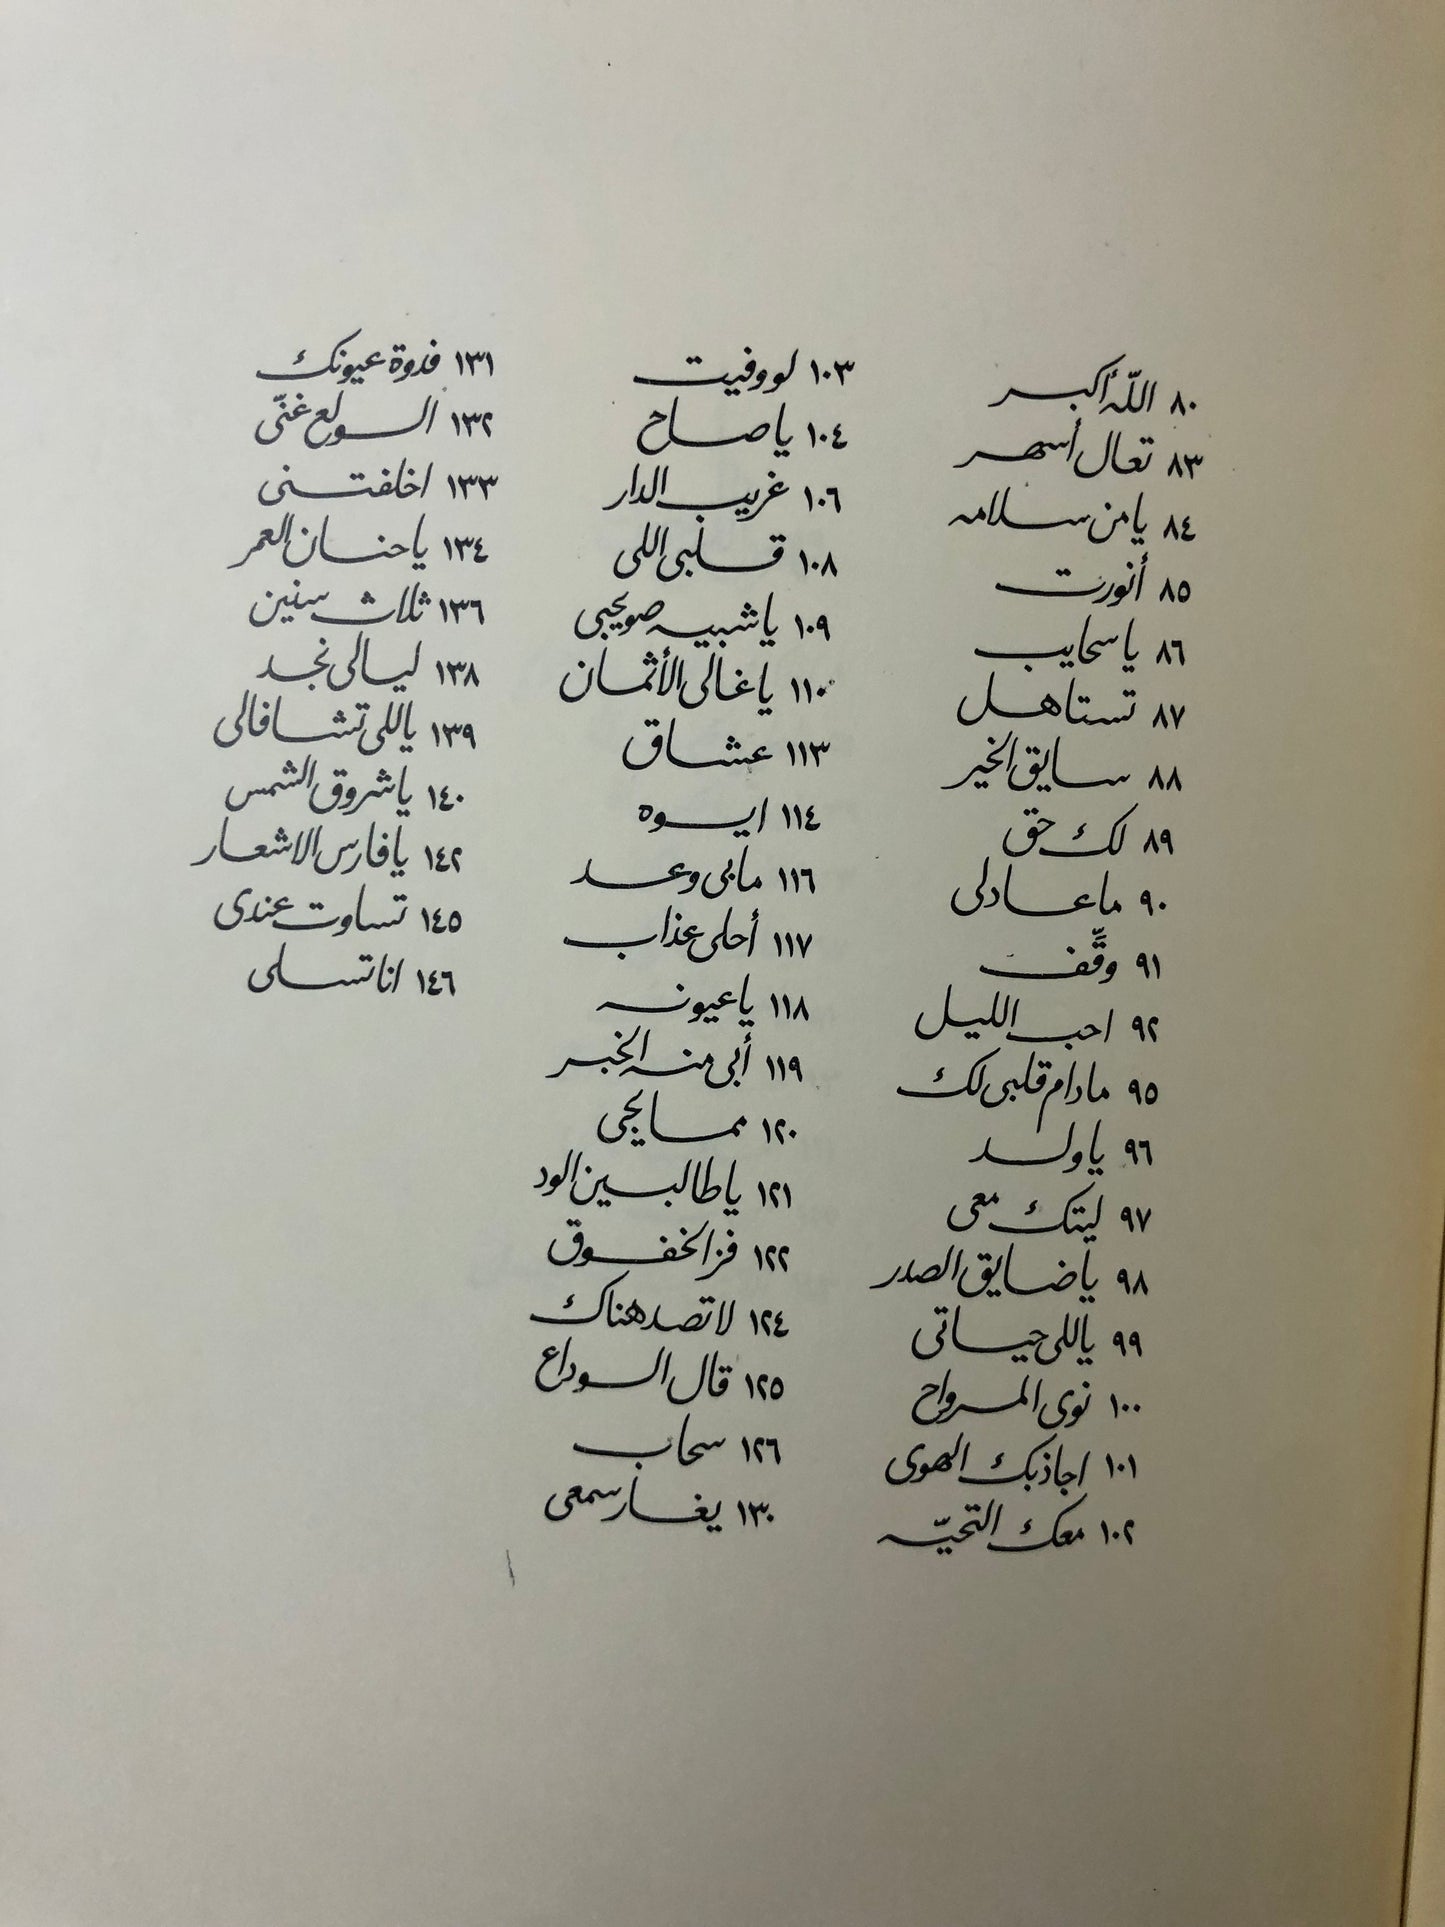 ٨٠ اللّه أكبر
٨٣ تعال أسهر
٨٤ يا من سلامه
٨٥ أنورت
٨٦ يا سحايب
٨٧ تستاهل
٨٨ سايق الخير
٨٩ لك حق
٩٠ ما عادلى
٩١ وقِّف
٩٢ احب الليل
٩٥ مادام قلبى لك
٩٦ يا ولد
٩٧ ليتك معى
٩٨ يا ضايق الصدر
٩٩ ياللى حياتى
١٠٠ نوى المرواح
١٠١ اجاذبك الهوى
١٠٢ معك التحيّه
١٠٣ لو وفيت
١٠٤ يا صاح
١٠٦ غريب الدار
١٠٨ قلبى اللى
١٠٩ يا شبيه صويحبى
١١٠ يا غالى الأثمان
١١٣ عشاق
١١٤ ايوه
١١٦ مابى وعد
١١٧ أحلى عذاب
١١٨ يا عيونه
١١٩ أبى منه الخبر
١٢٠ ممايجى
١٢١ يا طالبين الود
١٢٢ فز الخفوق
١٢٤ لا تصد هناك
١٢٥ قال الوداع
١٢٦ سحاب
١٣٠ يغار سمعى
١٣١ فدوة عيونك
١٣٢ الولع غنّى
١٣٣ اخلفتنى
١٣٤ يا حنان العمر
١٣٦ ثلاث سنين
١٣٨ ليالى نجد
١٣٩ ياللى تشافالى
١٤٠ يا شروق الشمس
١٤٢ يا فارس الاشعار
١٤٥ تساوت عندى
١٤٦ انا تسلى